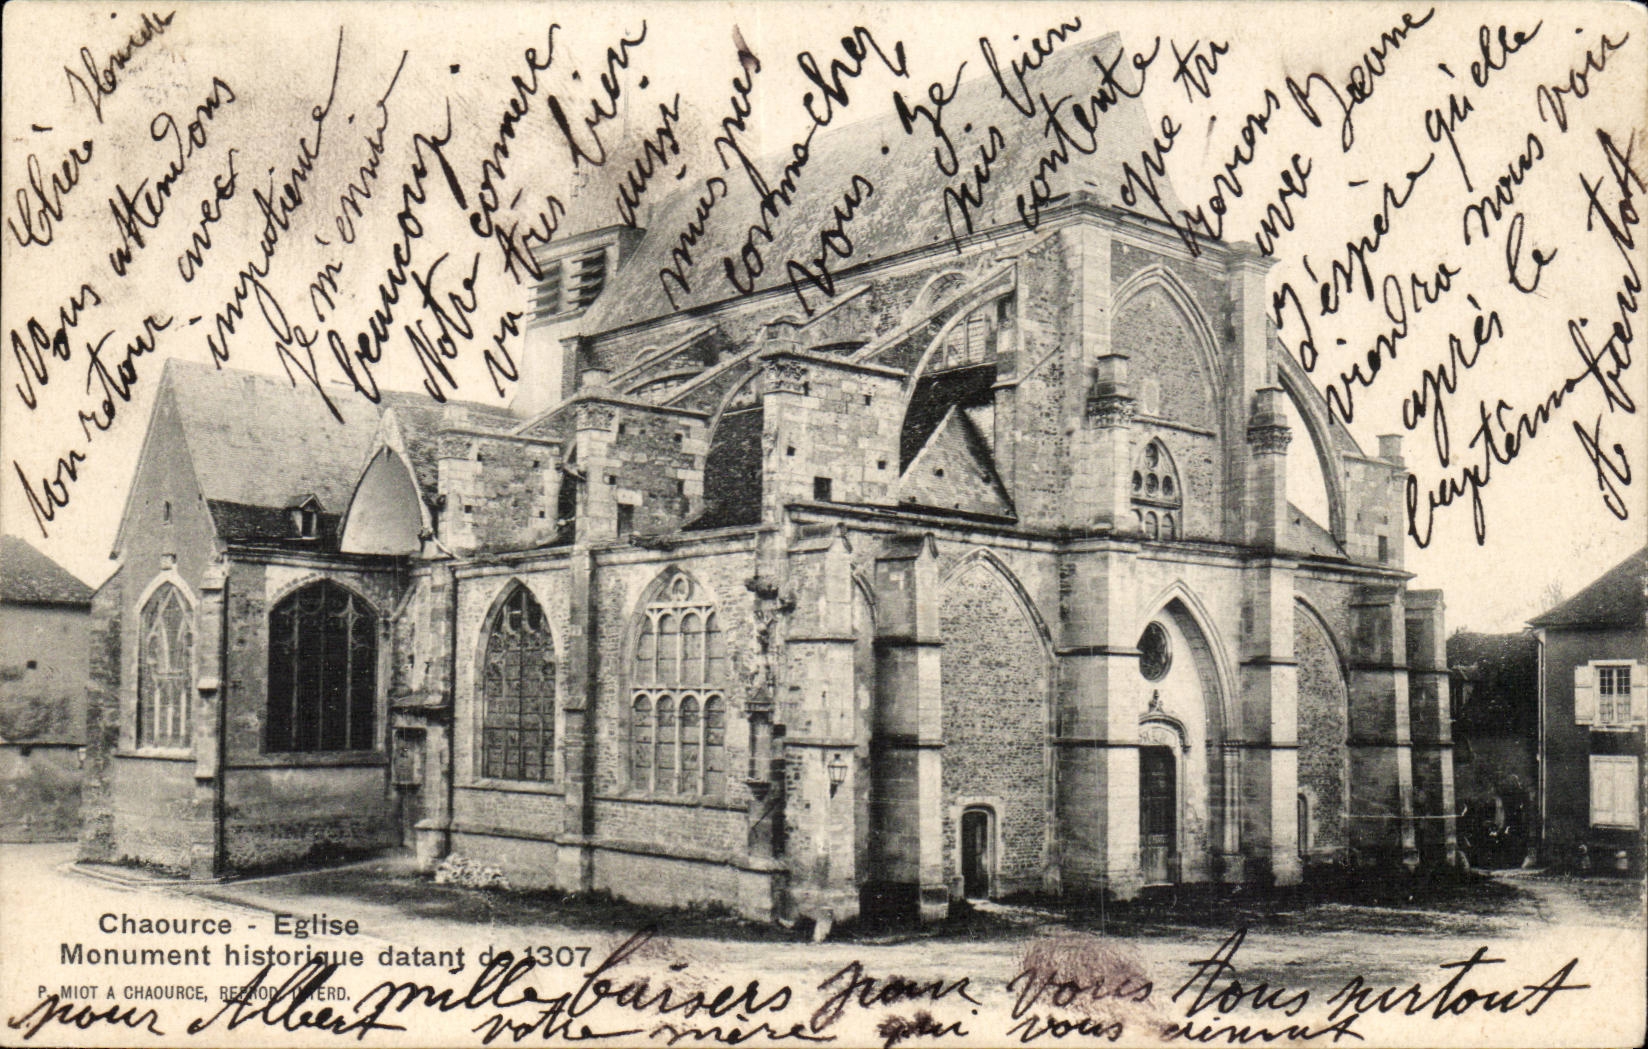 Chère
Nous attendons
ton retour avec
impatience
Je m'ennuie
beaucoup.
Notre commerce
va très bien
aussi
mais pas
comme chez
vous. Je
suis bien
contente
que tu
reviens
avec Jeanne
J'éspère qu'elle
viendra nous voir
après le
baptême
A bientôt
mille baisers pour vous tous surtout
pour Albert votre mère qui vous aiment
Chaource - Eglise
Monument historique datant de 1307
P. MIOT A CHAOURCE, REPROD. INTERD.